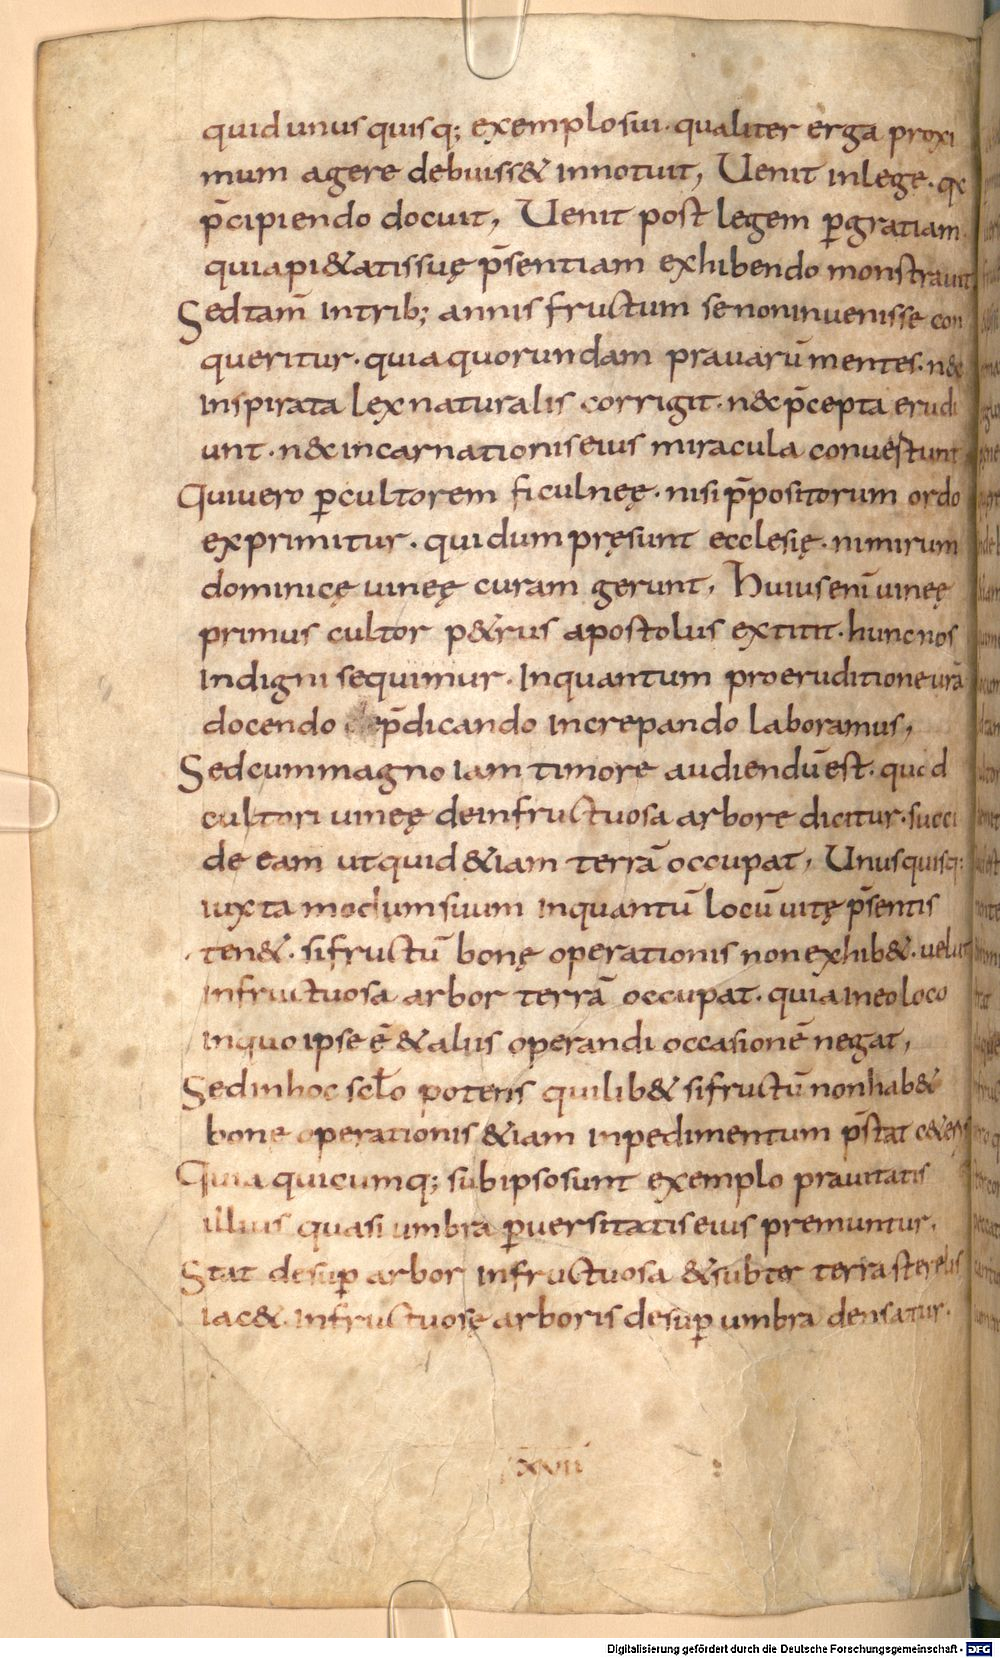 quid unus quisq; exemplo sui · qualiter erga proxi
mum agere debuiss& innotuit, Uenit in lege · q
p̄cipiendo docuit, Uenit post legem ꝑ gratiam
quia pi&atis suę p̄sentiam exhibendo monstrauit
Sed tam̄ in trib; annis fructum se non inuenisse con
queritur · quia quorundam prauarū mentes · n&
inspirata lex naturalis corrigit · n& p̄cepta erudi
unt · n& incarnationis eius miracula conuertunt
Qui uero ꝑ cultorem ficulneę · nisi p̄positorum ordo
exprimitur · qui dum pręsunt ecclesię · nimirum
dominicę uineę curam gerunt, Huius enī uineę
primus cultor p&rus apostolus extitit · hunc nos
indigni sequimur · Inquantum pro eruditione urā
docendo dep̄dicando increpando laboramus,
Sed cum magno iam timore audiendū est · quod
cultori uineę de infructuosa arbore dicitur · succi
de eam ut quid &iam terrā occupat, Unusquisq;
iuxta modum suum inquantū locū uitę p̄sentis
ten& · si fructū bonę operationis non exhib& · uelut
infructuosa arbor terrā occupat · quia in eo loco
in quo ipse ē & aliis operandi occasionē negat,
Sed in hoc scł̄o potens quilib& si fructū non hab&
bone operationis &iam inpedimentum p̄stat c&eris
Quia quicumq; sub ipso sunt exemplo prauitatis
illius quasi umbra ꝑuersitatis eius premuntur,
Stat desuꝑ arbor infructuosa & subter terra sterelis
iac& · Infructuosę arboris desuꝑ umbra densatur ·
xvii
Digitalisierung gefördert durch die Deutsche Forschungsgemeinschaft - DFG